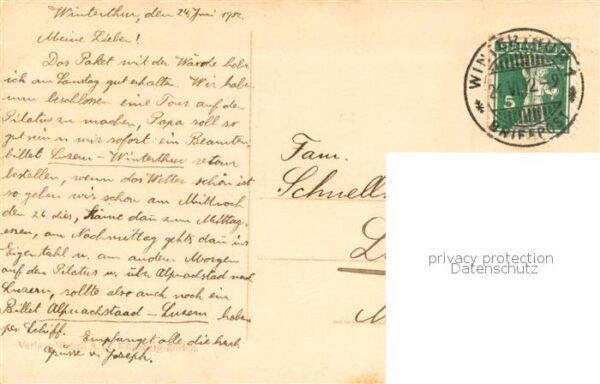 Winterthur, den 24. Juni 1912.
Meine Lieben!
Das Paket mit der Wäsche habe
ich am Samstag gut erhalten. Wir haben
nun beschlossen eine Tour auf den
Pilatus zu machen, Papa soll so
gut sein u. mir sofort ein Beamten
billet Luzern - Winterthur retour
bestellen, wenn das Wetter schön ist
so gehen wir schon am Mittwoch
den 26 dies, käme dann zum Mittag-
essen, am Nachmittag gehts dann ins
Eigenthal u. am andern Morgen
auf den Pilatus u. über Alpnachstad nach
Luzern, sollte also auch noch ein
Billet Alpnachstaad - Luzern haben
per Schiff. Empfanget alle die herzl.
Grüsse v. Joseph.
Fam.
Schnell
WINTERTHUR 1
24.VI.12.-9
BRIEFEXP.
5
privacy protection
Datenschutz